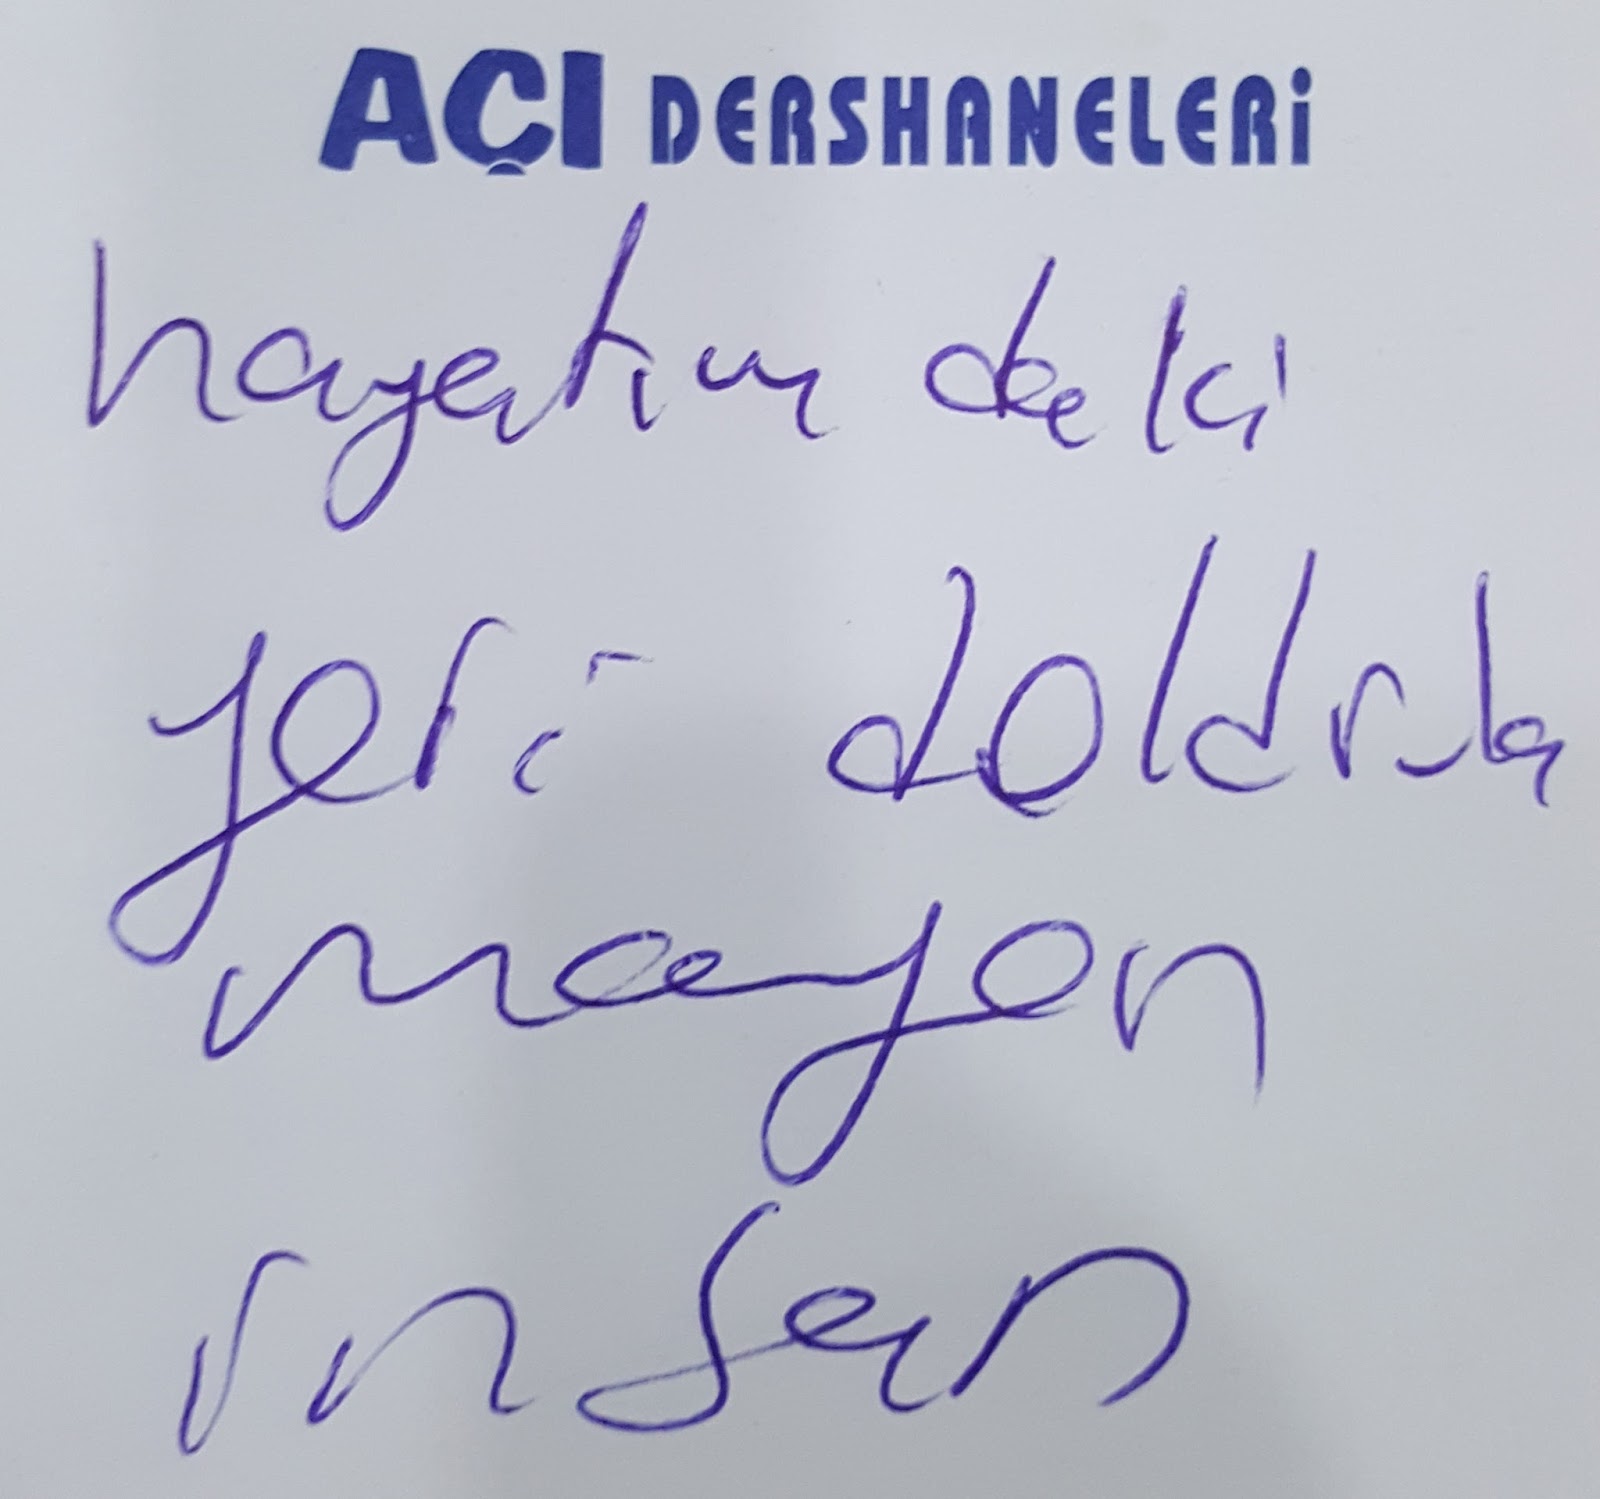 AÇI DERSHANELERİ
hayatım daki
yeri doldrula
mayan
insan